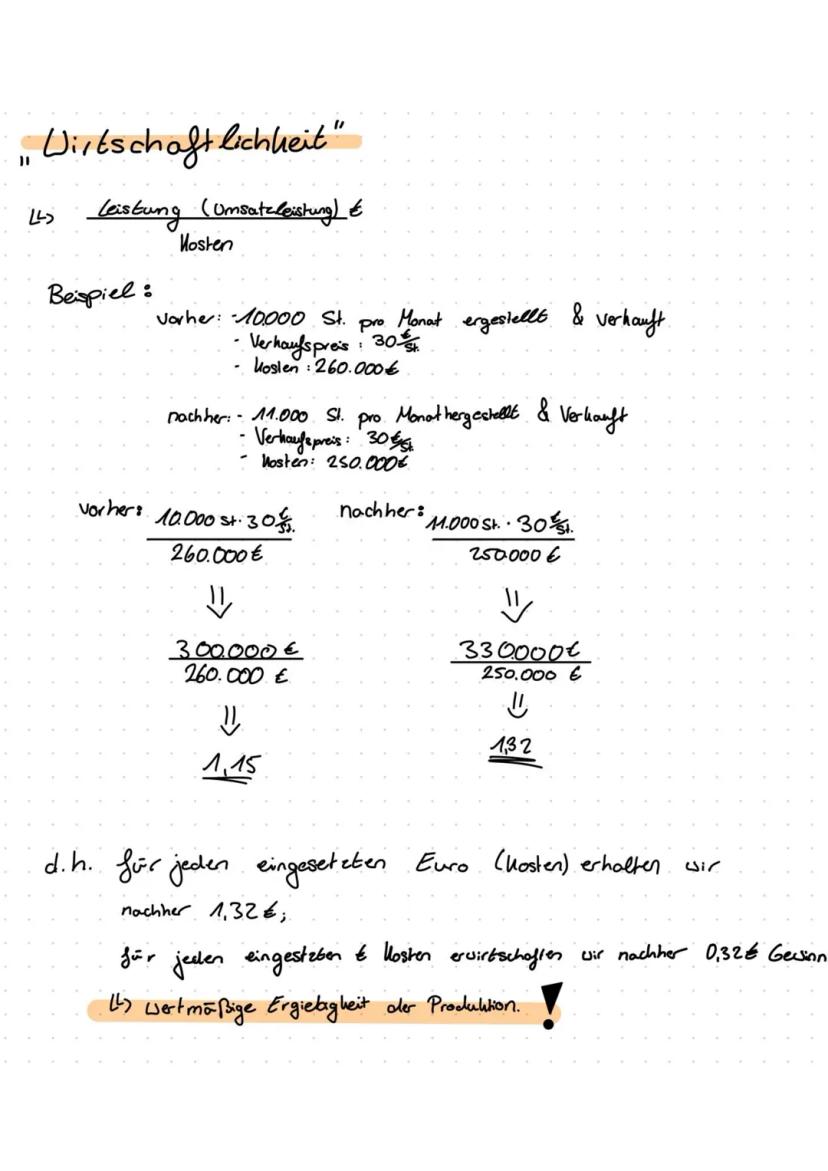 „Wirtschaftlichkeit"
↳ Leistung (Umsatzleistung) €
Kosten
Beispiel:
vorher: - 10.000 St. pro Monat ergestellt & verkauft
- Verkaufspreis: 30 €/St.
- Kosten: 260.000 €
nachher: - 11.000 St. pro Monat hergestellt & Verkauft
- Verkaufspreis: 30 €/St.
- Kosten: 250.000 €
vorher: 10.000 St. · 30 €/St. nachher: 11.000 St. · 30 €/St.
260.000 € 250.000 €
⇓ ⇓
300.000 € 330.000 €
260.000 € 250.000 €
⇓ ⇓
1,15 1,32
d.h. für jeden eingesetzten Euro (Kosten) erhalten wir
nachher 1,32 €;
für jeden eingestzben € Kosten erwirtschaften wir nachher 0,32 € Gewinn
↳ wertmäßige Ergiebigkeit der Produktion. !